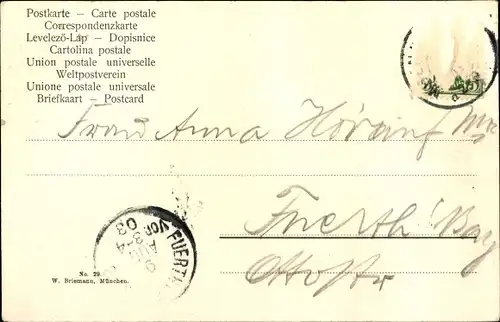 Postkarte – Carte postale
Correspondenzkarte
Levelező-Lap – Dopisnice
Cartolina postale
Union postale universelle
Weltpostverein
Unione postale universale
Briefkaart – Postcard
Frau Anna
Fuerth / Bay
FUERTH
VOR
03
No. 29
W. Briemann, München.